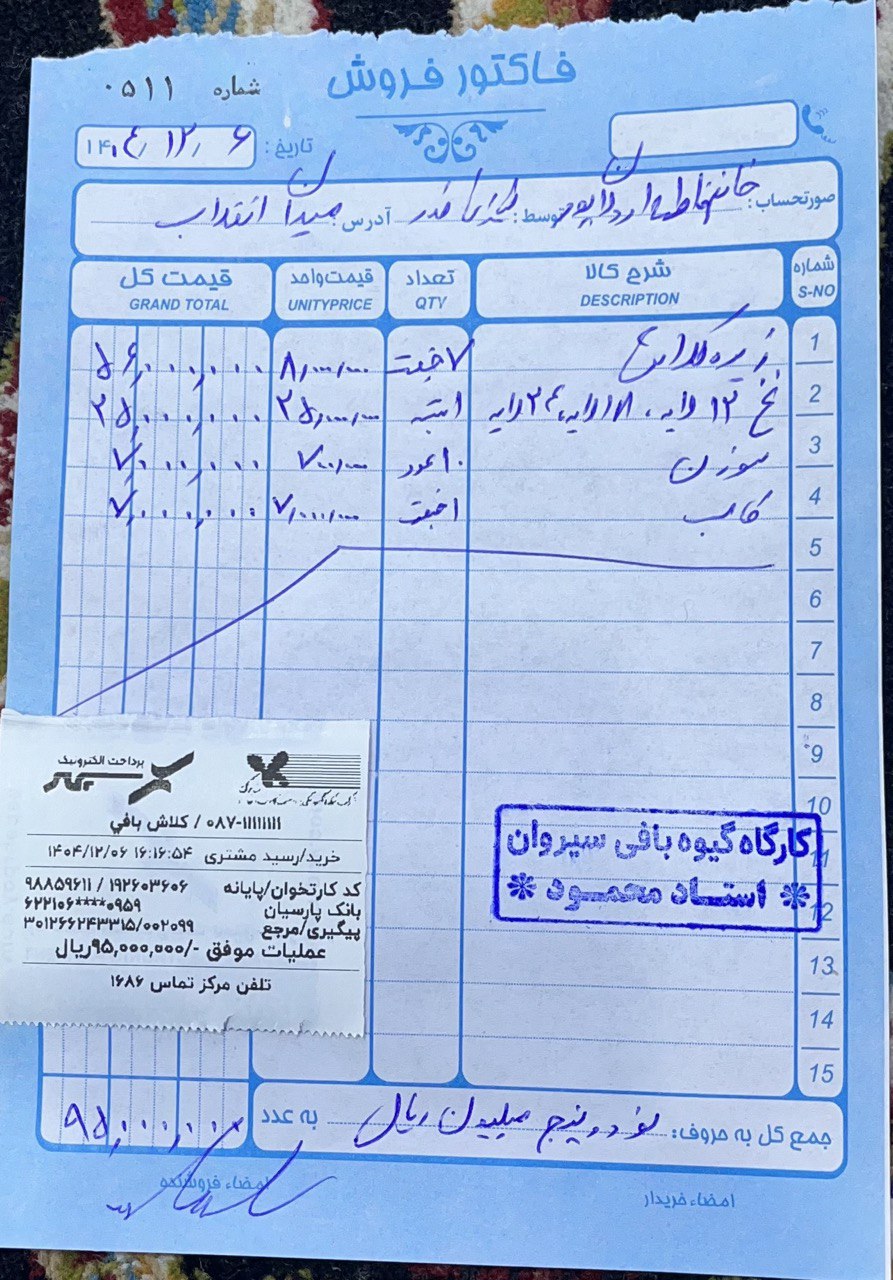 فاکتور فروش
شماره ۰۵۱۱
تاریخ: ۱۴۰۴/۱۲/۰۶
صورتحساب: خانم فاطمه توسط: آدرس: میدان انقلاب
شماره S-NO شرح کالا DESCRIPTION تعداد QTY قیمت واحد UNITYPRICE قیمت کل GRAND TOTAL
1 زیره کلاش ۷ جفت ۸/۰۰۰/۰۰۰ ۵۶,۰۰۰,۰۰۰
2 نخ ۱۲ لایه، ۱۸ لایه، ۲۴ لایه ۱ بسته ۲۵/۰۰۰/۰۰۰ ۲۵,۰۰۰,۰۰۰
3 سوزن ۱۰ عدد ۷۰۰/۰۰۰ ۷,۰۰۰,۰۰۰
4 قالب ۱ جفت ۷/۰۰۰/۰۰۰ ۷,۰۰۰,۰۰۰
5
6
7
8
9
10
11
12
13
14
15
کارگاه گیوه بافی سیروان
* استاد محمود *
پرداخت الکترونیک
۰۸۷-۱۱۱۱۱۱۱۱ / کلاش بافي
خرید/رسید مشتری ۱۴۰۴/۱۲/۰۶ ۱۶:۱۶:۵۴
کد کارتخوان/پایانه ۹۸۸۵۹۶۱۱ / ۱۹۲۶۰۳۶۰۶
بانک پارسیان ۶۲۲۱۰۶****۰۹۵۹
پیگیری/مرجع ۳۰۱۲۶۶۲۴۳۳۱۵/۰۰۲۰۹۹
عملیات موفق -/۹۵,۰۰۰,۰۰۰ریال
تلفن مرکز تماس ۱۶۸۶
جمع کل به حروف: نود و پنج میلیون ریال به عدد ۹۵,۰۰۰,۰۰۰
امضاء خریدار امضاء فروشنده